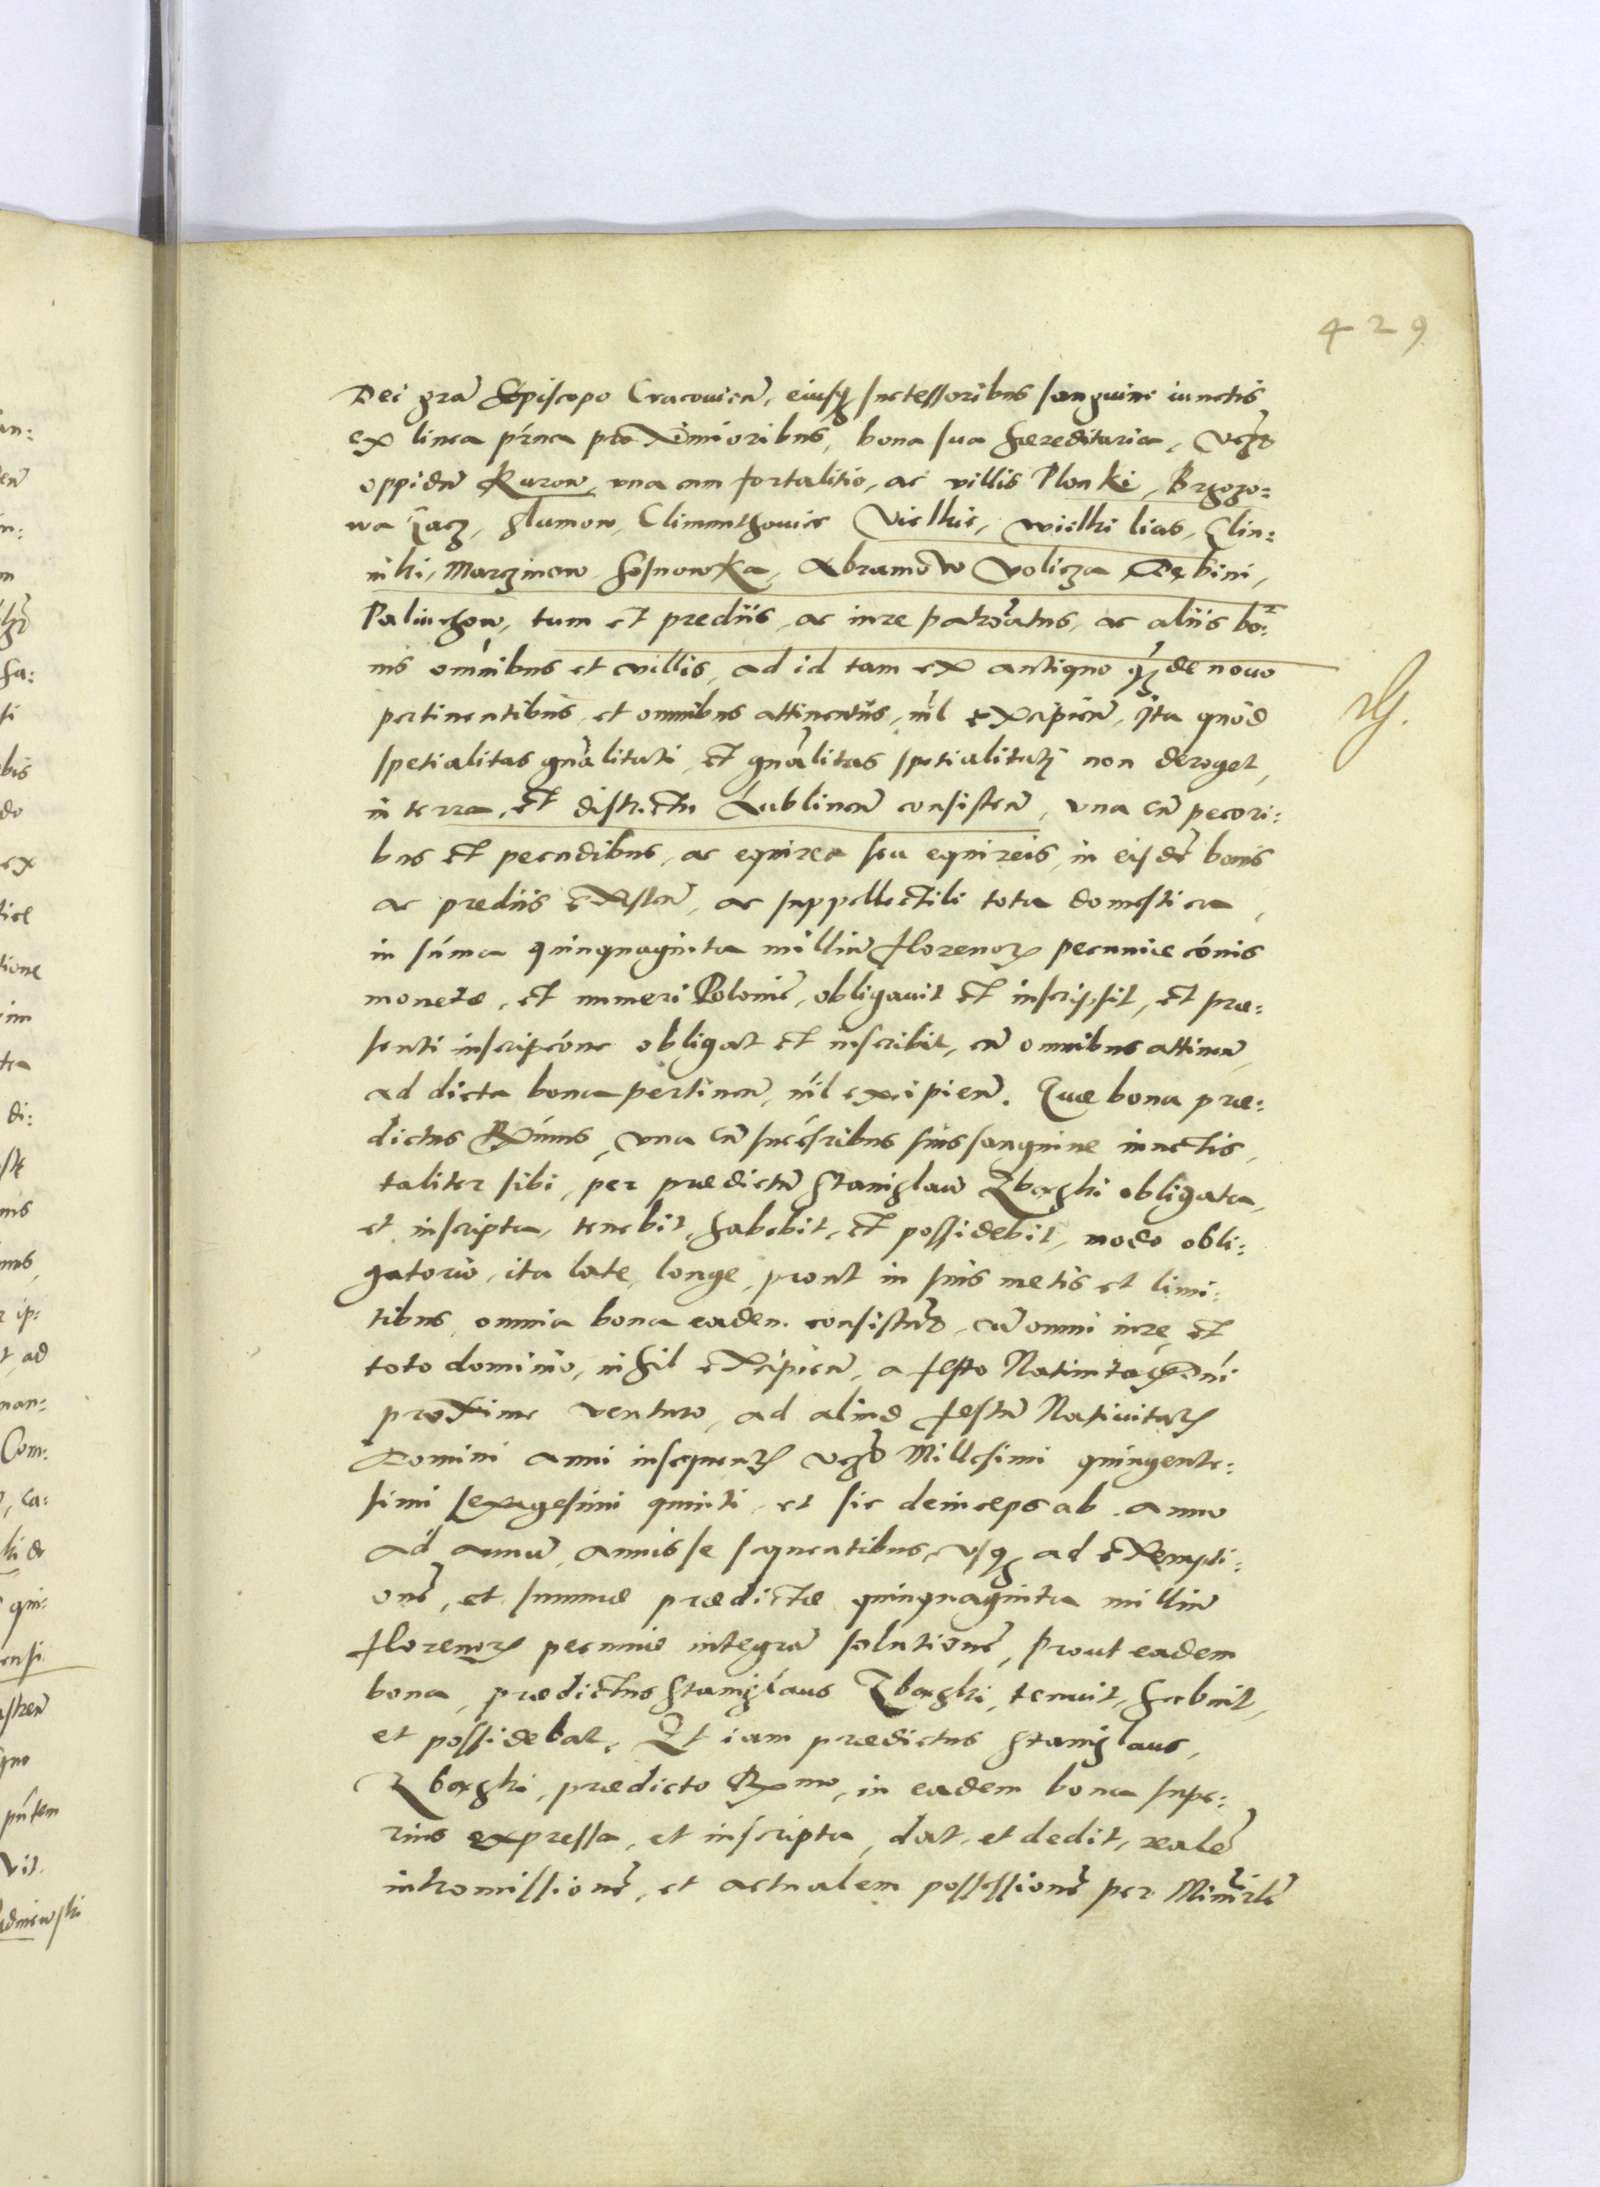 429
Dei gra Episcopo Cracovien, eiusq successoribus sanguine iunctis
ex linea prna proximioribus, bona sua haereditaria, vczo
oppidu Kurow, una cum fortalitio, ac villis Plonki, Brzozo=
wa Gacz, Hlumow, Climunthovice Vielkie, wielki lias, Clin=
niki, Marczinow Sosnowka, Abramow Volicza Dębini,
Paluchow, tum et prediis, ac iure patroatus, ac aliis bo=
nis omnibus et villis, ad id tam ex antiquo q de novo
pertinentibus, et omnibus attinentiis, nil excipien, Ita quod
spetialitas gnalitati, et gnalitas spetialitati non deroget,
in terra, et districtu Lublinen consisten, una cu pecori=
bus et pecudibus, ac equirea seu equireis, in eisde bonis
ac prediis existen, ac suppellectili tota domestica,
in suma quinquaginta milliu florenor pecuniae cois
monetae, et numeri Polonie, obligavit et inscripsit, et prae=
senti inscripcone obligat et inscribit, cu omnibus attinen,
ad dicta bona pertinen, nil excipien. Quae bona prae=
dictus Rximus, una cu succesribus suis sanguine iunctis,
taliter sibi, per praedictu Stanislau Zbąski obligata,
et inscripta, tenebit, habebit, et possidebit, modo obli=
gatorio, ita late, longe, prout in suis metis et limi=
tibus, omnia bona eadem consistut, cu omni iure, et
toto dominio, nihil excipien, a festo Nativitatis Dni
proxime venturo, ad aliud festu Nativitatis
Domini anni insequentis vczo Millesimi quingente=
simi sexagesimi quinti et sic deinceps ab anno
ad annum, annis se sequentibus, usq ad exempti=
one, et summae praedictae quinquaginta milliu
florenor pecuniae integra solutione, prout eadem
bona, praedictus Stanislaus Zbąski, tenuit, habuit,
et possidebat. Et iam praedictus Stanislaus,
Zbąski, praedicto Rxmo, in eadem bona supe=
rius expressa, et inscripta, dat et dedit, reale
intromissione, et actualem possessione per Minirle